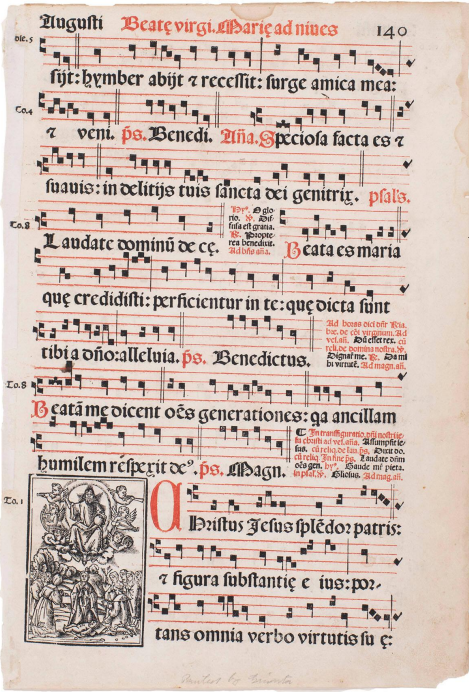 Augusti Beatę virgi. Marię ad niues 140
Dic. 5
sijt: hymber abijt ⁊ recessit: surge amica mea:
To. 4
⁊ veni. p̄s. Benedi. Aña. Speciosa facta es ⁊
suauis: in delitijs tuis sancta dei genitrix. psal's.
To. 8
Hy⁹. O glo
rio. ℣. Dif
fusa est gratia.
℟. Propte
rea benedixit.
Ad bñs aña.
Laudate dominū de cę. Beata es maria
quę credidisti: perficientur in te: quę dicta sunt
Ad horas
vel. añ. Dū esset rex. cū
reli. de domina nostra. ℣.
Dignare me. ℟. Da mi
bi virtutē. Ad magn. añ.
tibi a dño: alleluia. p̄s. Benedictus.
To. 8
Beatā me dicent oēs generationes: qa ancillam
In transfiguratio. dñi nostri ie
su christi ad vel. añ. Assumpsit ie
sus. cū reliq. de lau. p̄s. Dixit do.
cū reliq. In fine p̄s. Laudate dñm
oēs gen. hy⁹. Gaude mi pieta.
Ad mag. añ.
humilem respexit de⁹. p̄s. Magn.
To. 1
Christus Jesus splēdor patris:
⁊ figura substantię e ius: por-
tans omnia verbo virtutis su ę: